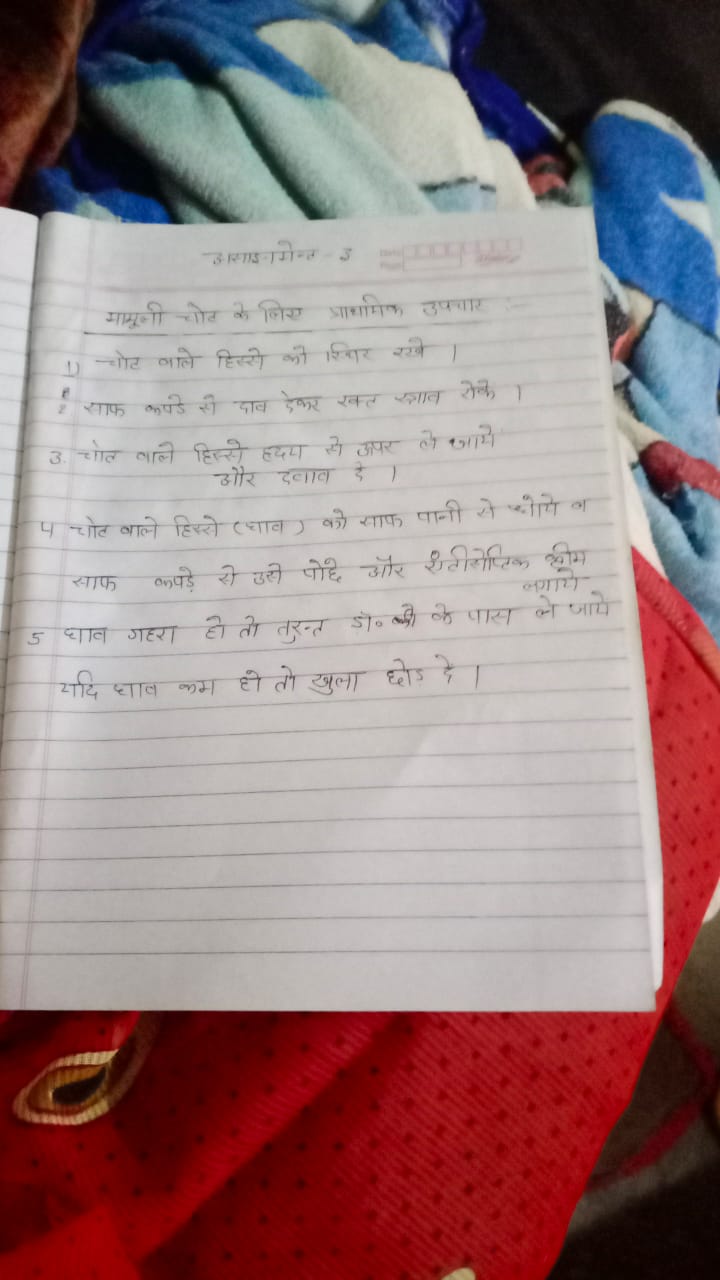 असाइनमेन्ट - 3
मामूली चोट के लिए प्राथमिक उपचार :-
1) चोट वाले हिस्से को स्थिर रखे ।
2 साफ कपडे से दाव देकर रक्त स्त्राव रोके ।
3. चोट वाले हिस्से हृदय से ऊपर ले जाये
और दवाव दे ।
4 चोट वाले हिस्से (घाव) को साफ पानी से धोये व
साफ कपड़े से उसे पोछे और एंटीसेप्टिक क्रीम
लगाये
5 घाव गहरा हो तो तुरन्त डॉ० के पास ले जाये
यदि घाव कम हो तो खुला छोड़ दे ।